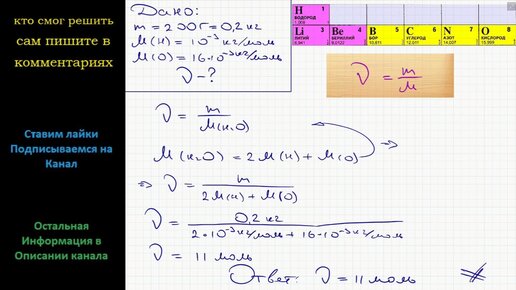 кто смог решить
сам пишите в
комментариях
Ставим лайки
Подписываемся на
Канал
Остальная
Информация в
Описании канала
Дано:
m = 200 г = 0,2 кг
M(H) = 10⁻³ кг/моль
M(O) = 16·10⁻³ кг/моль
ν - ?
H 1
ВОДОРОД
1,008
Li 3 Be 4 B 5 C 6 N 7 O 8
ЛИТИЙ БЕРИЛЛИЙ БОР УГЛЕРОД АЗОТ КИСЛОРОД
6,941 9,0122 10,811 12,011 14,007 15,999
ν = m/M
ν = m/M(H₂O)
M(H₂O) = 2M(H) + M(O)
⇒ ν = m/2M(H) + M(O)
ν = 0,2 кг/2·10⁻³ кг/моль + 16·10⁻³ кг/моль
ν = 11 моль
Ответ: ν = 11 моль